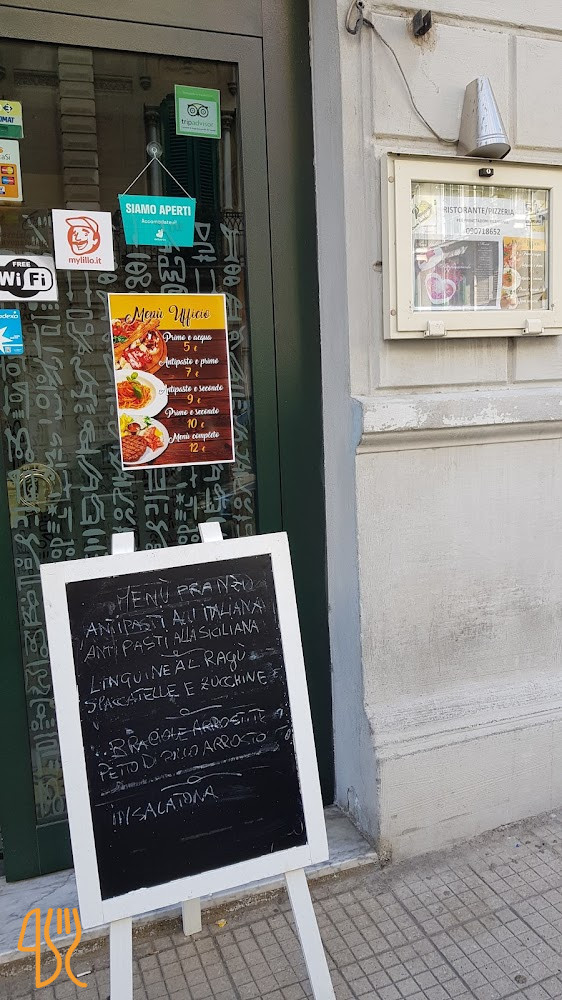 tripadvisor
OMAT
SIAMO APERTI
mylillo.it
FREE
Wi Fi
Menù Ufficio
Primo e acqua
5 €
Antipasto e primo
7 €
Antipasto e secondo
9 €
Primo e secondo
10 €
Menù completo
12 €
RISTORANTE/PIZZERIA
090718652
MENÙ PRANZO
ANTIPASTI ALL'ITALIANA
ANTIPASTI ALLA SICILIANA
LINGUINE AL RAGÙ
SPACCATELLE E ZUCCHINE
BRACIOLE ARROSTITE
PETTO DI POLLO ARROSTO
INSALATONA